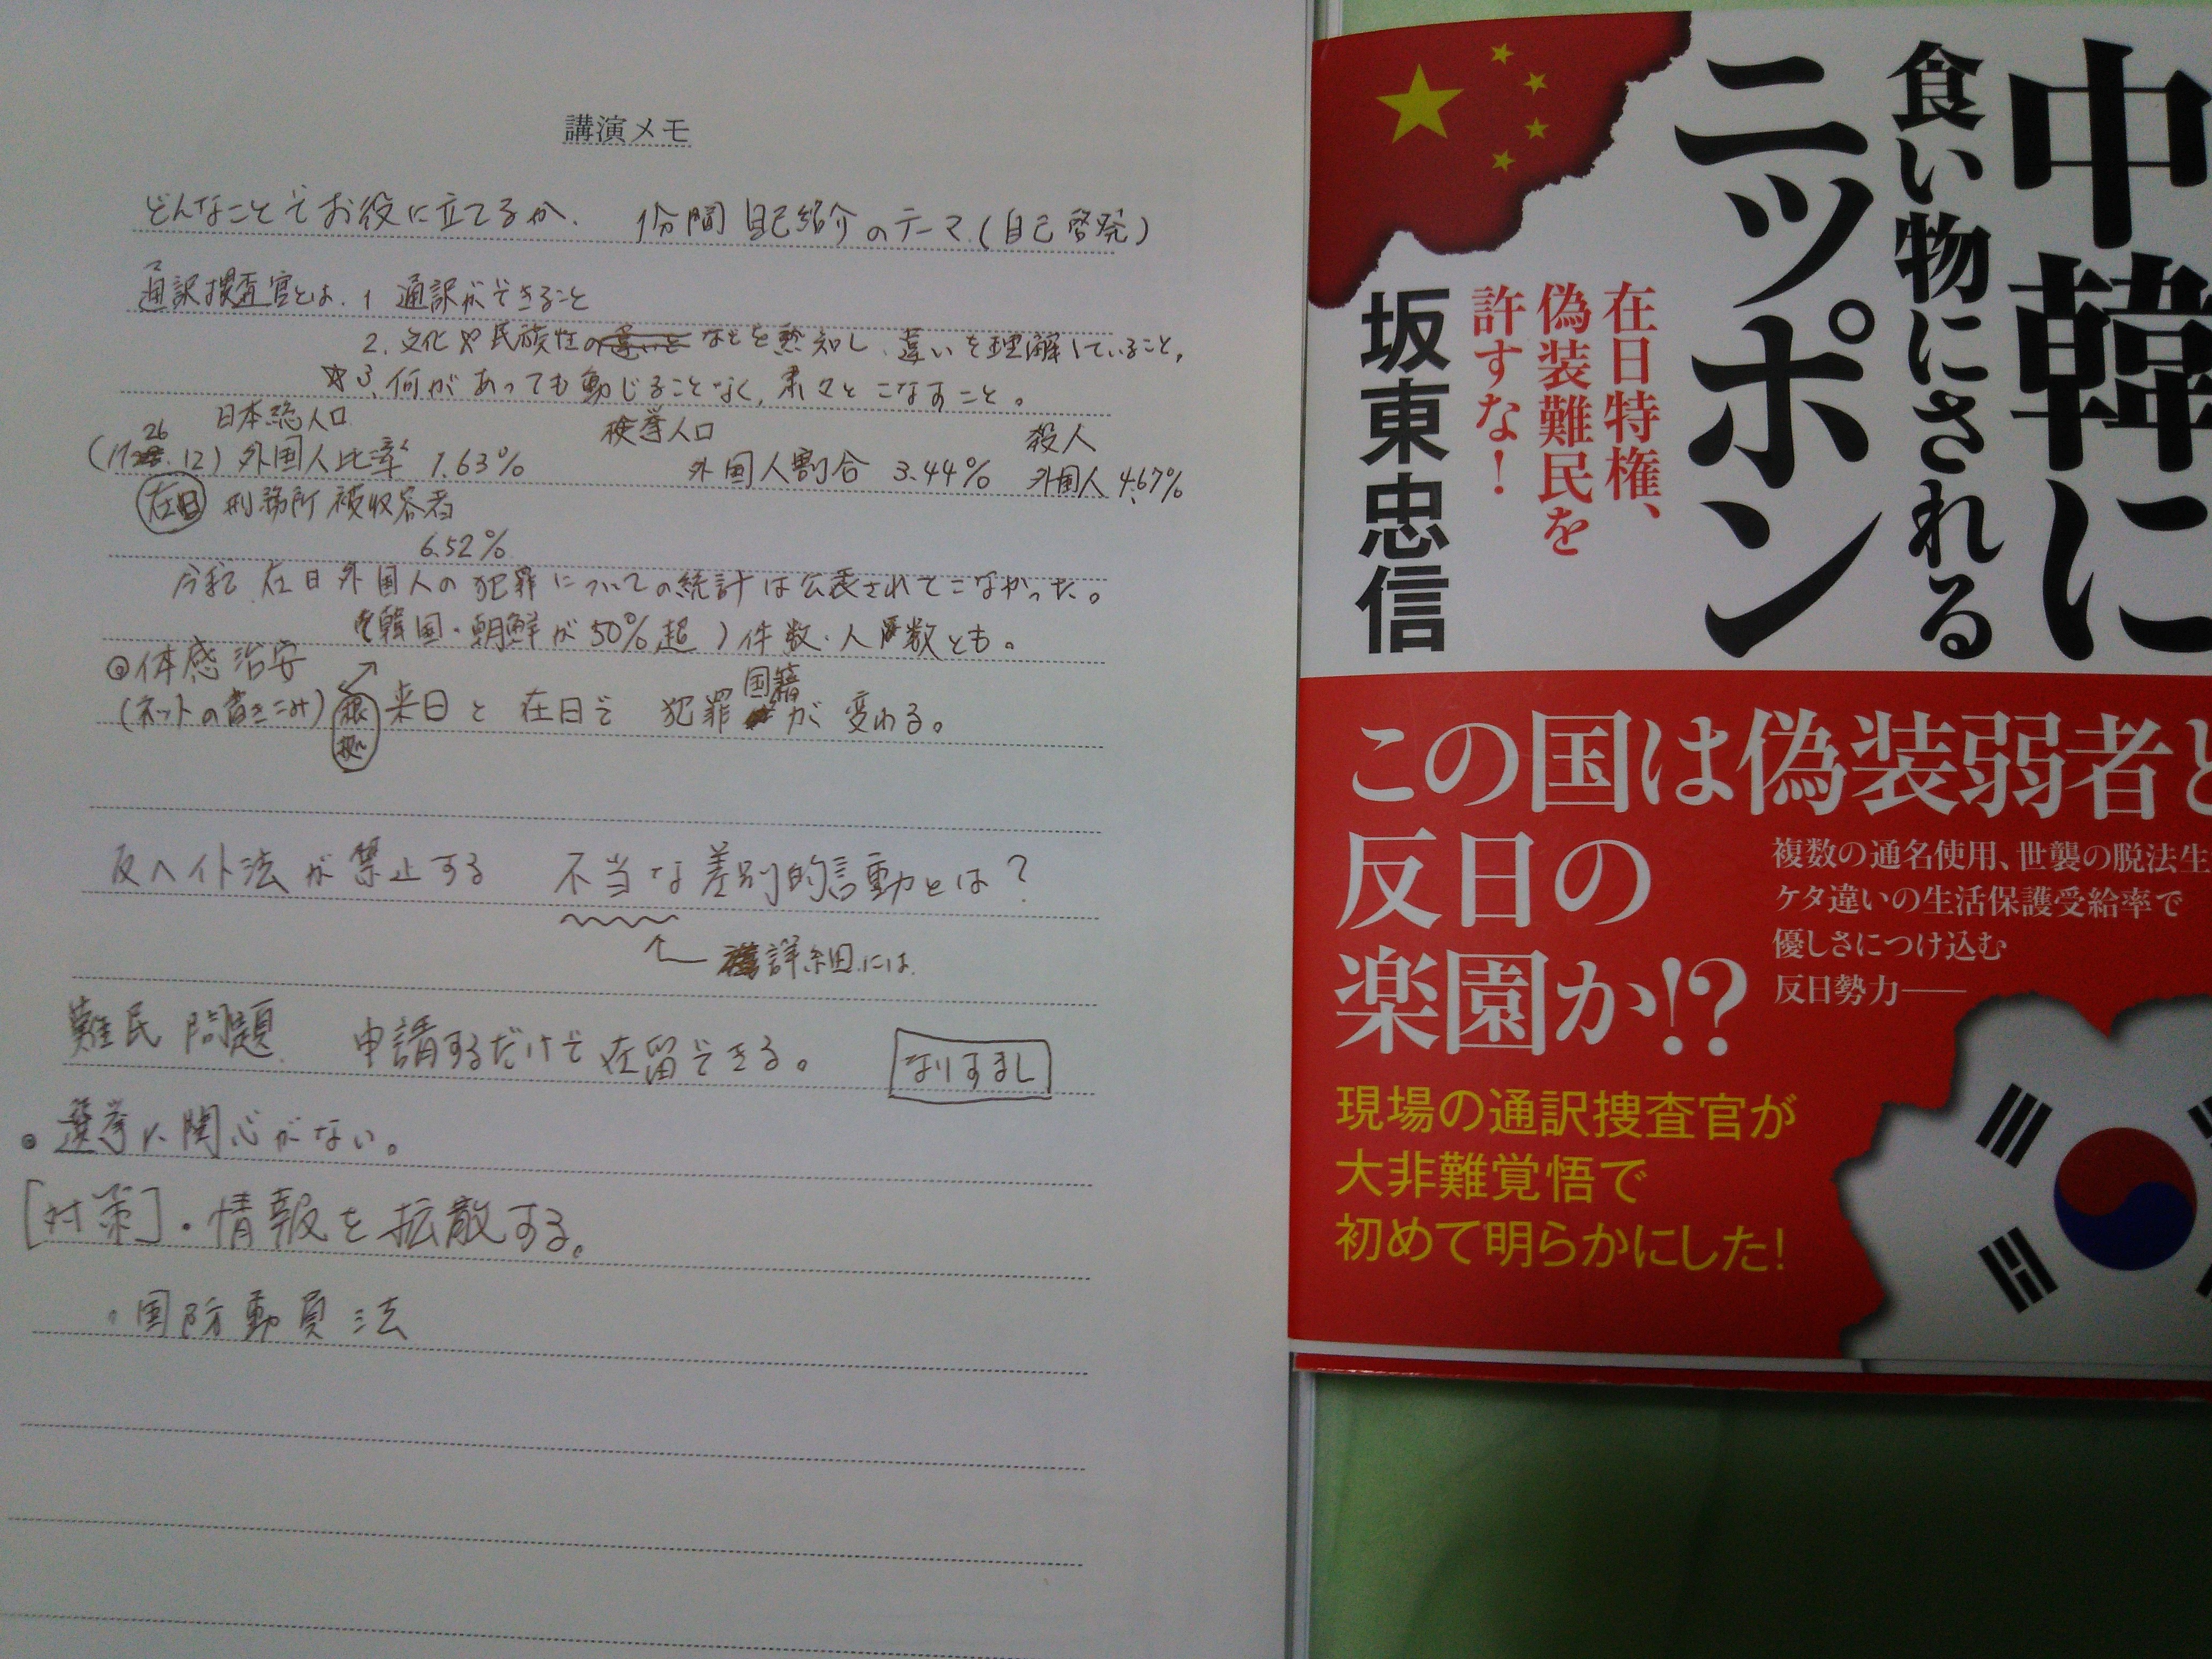 講演メモ
どんなことでお役に立てるか. 1分間 自己紹介のテーマ.(自己啓発)
通訳捜査官とは. 1 通訳ができること
2. 文化や民族性の違いと などを熟知し、違いを理解していること。
☆3. 何があっても動じることなく, 粛々とこなすこと。
日本総人口 検挙人口 殺人
26
.12) 外国人比率 1.63% 外国人割合 3.44% 外国人 4.67%
在日 刑務所被収容者
6.52%
今まで 在日外国人の犯罪についての統計は公表されてこなかった。
韓国・朝鮮が50%超) 件数・人数とも。
◎体感治安
国籍
(ネットの書きこみ) 根拠 来日と在日で 犯罪が変わる。
反ヘイト法が禁止する 不当な差別的言動とは?
← 詳細には
難民問題 申請するだけで在留できる。 なりすまし
選挙に関心がない。
[対策]・情報を拡散する。
。国防動員法
中韓に
食い物にされる
ニッポン
在日特権、
偽装難民を
許すな!
坂東忠信
この国は偽装弱者と
反日の
楽園か!?
複数の通名使用、世襲の脱法生
ケタ違いの生活保護受給率で
優しさにつけ込む
反日勢力——
現場の通訳捜査官が
大非難覚悟で
初めて明らかにした!